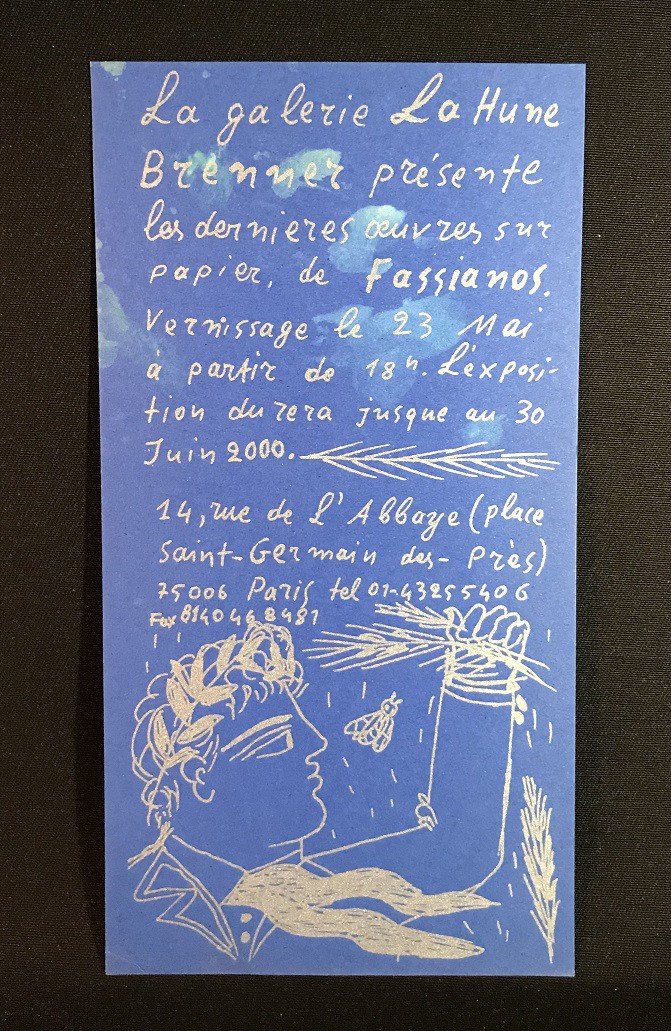 La galerie La Hune
Brenner présente
les dernieres œuvres sur
papier, de Fassianos.
Vernissage le 23 Mai
à partir de 18h. L'exposi-
tion durera jusque au 30
Juin 2000.
14, rue de L'Abbaye (place
saint-Germain des-Près)
75006 Paris tel 01-43255406
Fax 0140468481